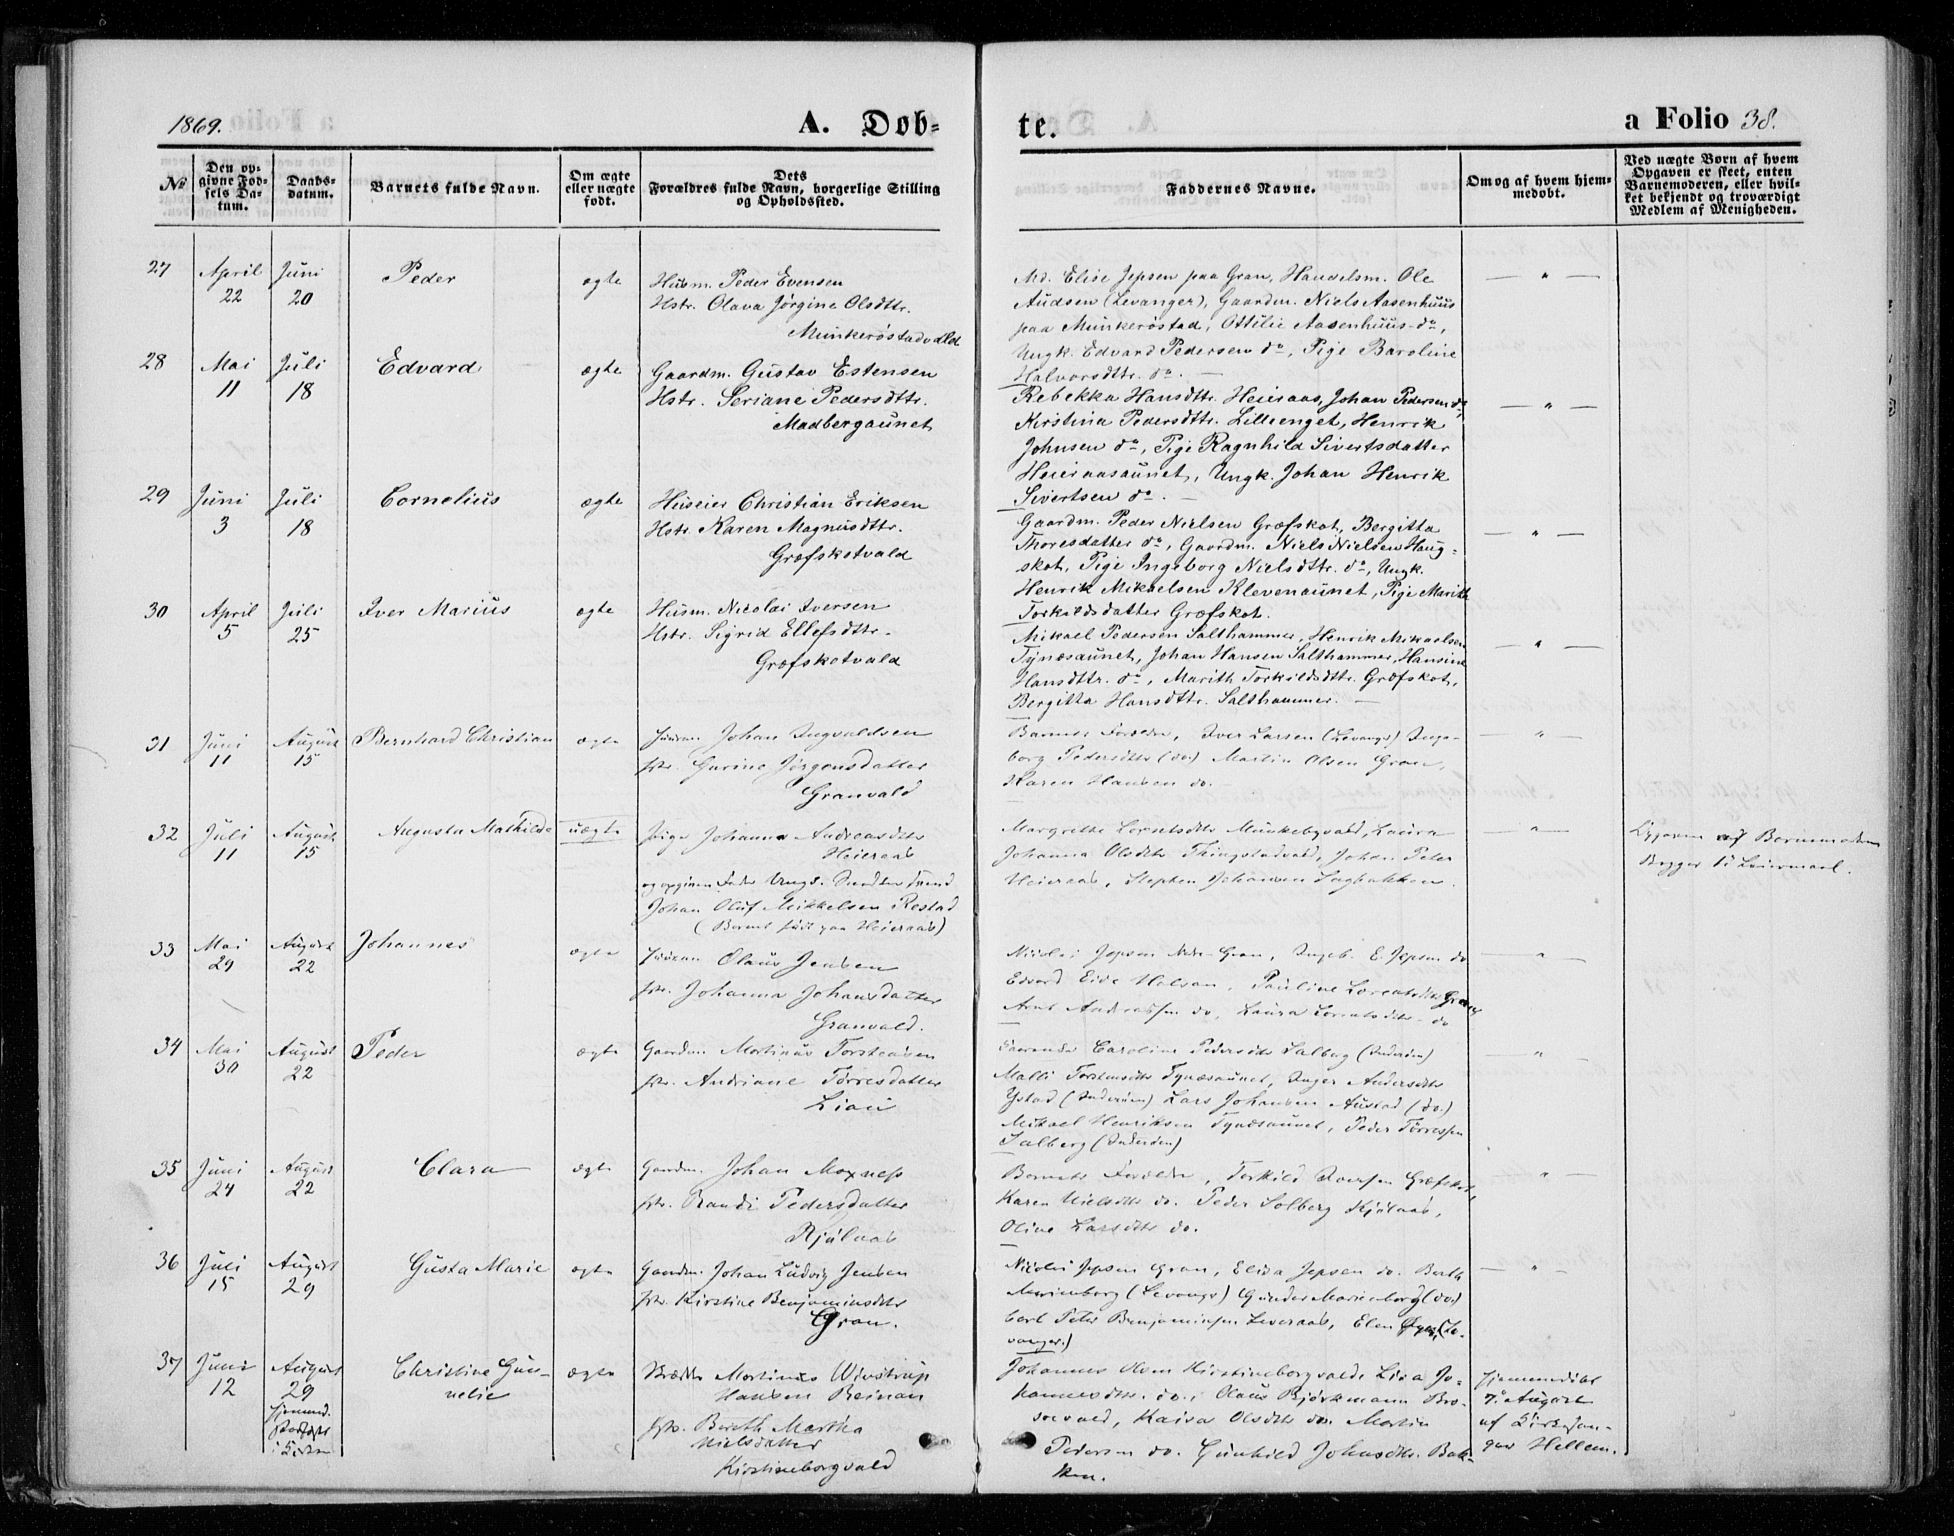 1869.
A. Døb=
te.
a Folio 38.
No
Den op-
givne Fød-
sels Da-
tum.
Daabs-
datum.
Barnets fulde Navn.
Om ægte
eller uægte
født.
Dets
Forældres fulde Navn, borgerlige Stilling
og Opholdssted.
Faddernes Navne.
Om og af hvem hjem-
medøbt.
Ved uægte Børn af hvem
Opgaven er skeet, enten
Barnemoderen, eller hvil-
ket bekjendt og troværdigt
Medlem af Menigheden.
27
April
22
Juni
20
Peder
ægte
Husm. Peder Evensen
Hstr. Olava Jørgine Olsdttr.
Munkerøstadvald
Md. Elise Jepsen paa Gran, Handelsm. Ole
Audsen (Levanger), Gaardm. Niels Aasenhuus
paa Munkerøstad, Ottilie Aasenhuus do,
Ungk. Edvard Pedersen do, Pige Baroline
Halvorsdttr. do. —
— " —
28
Mai
11
Juli
18
Edvard
ægte
Gaardm. Gustav Estensen
Hstr. Seriane Pedersdttr.
Madbergaunet
Rebekka Hansdttr. Heieraas, Johan Pedersen do,
Kirstina Pedersdttr. Lilleenget, Henrik
Johnsen do, Pige Ragnhild Sivertsdatter
Heieraasaunet, Ungk. Johan Henrik
Sivertsen do. —
— " —
29
Juni
3
Juli
18
Cornelius
ægte
Huseier Christian Eriksen
Hstr. Karen Magnusdttr.
Græfskotvald
Gaardm. Peder Nielsen Græfskot, Bergitta
Thoresdatter do, Gaardm. Niels Nielsen Haug-
skot, Pige Ingeborg Nielsdttr. do, Ungk.
Henrik Mikaelsen Klevenaunet, Pige Marith
Torkildsdatter Græfskot.
— " —
30
April
5
Juli
25
Iver Marius
ægte
Husm. Nicolai Iversen
Hstr. Sigrid Ellefsdttr.
Græfskotvald
Mikael Pedersen Salthammer, Henrik Mikaelsen
Tynæsaunet, Johan Hansen Salthammer, Hansine
Hansdttr. do, Marith Torkildsdttr. Græfskot,
Bergitta Hansdttr. Salthammer. —
— " —
31
Juni
11
August
15
Bernhard Christian
ægte
Johan Ingvaldsen
Gurine Jørgensdatter
Granvald
Barnets Forældre, Iver Larsen (Levanger) Inge-
borg Pedersdttr (do) Martin Olsen Gran,
Karen Hansen do.
— " —
32
Juli
11
August
15
Augusta Mathilde
uægte
Pige Johanna Andreasdttr
Heieraas
og opgiven Fader Ungk.
Johan Oluf Mikkelsen Restad
(Barnet født paa Heieraas)
Margrethe Lorntsdttr Munkebyvald, Laura
Johanna Olsdttr Tingstadvald, Johan Peter
Heieraas, Stephen Johansen Sagbakken.
— " —
Opgaven af Barnemoderen
Begges 1ste Leiermaal.
33
Mai
29
August
22
Johannes
ægte
Husman Olaus Jensen
Hstr. Johanna Johansdatter
Granvald.
Nicolai Jepsen Nedre Gran, Ingeb. E. Jepsen do
Edvard Eide Halsan, Pauline Lorentsdttr Gran,
Arnt Andreassen do, Laura Lorentsdttr do
— " —
34
Mai
30
August
22
Peder
ægte
Gaardm. Martinus Torstensen
Hstr. Andriane Tørresdatter
Liau
Caroline Pedersdttr Salberg (Inderøen)
Malli Torstensdttr Tynæsaunet, Inger Andersdttr
Ystad (Inderøen) Lars Johansen Austad (do.)
Mikael Henriksen Tynæsaunet, Peder Tørressen
Salberg (Inderøen)
— " —
35
Juni
24
August
22
Clara
ægte
Gaardm. Johan Moxness
Hstr. Randi Pedersdatter
Kjølaas
Barnets Forældre, Torkild Iversen Græfskot,
Karen Nielsdttr do. Peder Solberg Kjølaas,
Oline Larsdttr do.
"
36
Juli
15
August
29
Gusta Marie
ægte
Gaardm. Johan Ludvig Jensen
Hstr. Kirstine Benjaminsdttr
Gran.
Nicolai Jepsen Gran, Elisa Jepsen do. Berth
Marienborg (Levanger) Gunder Marienborg (do)
Peter Benjaminsen Heieraas, Elen Øyen (Le-
vanger.)
— " —
37
Juni
12
August
29
Hjemmed.
i Kirken
Christine Gun-
nelie
ægte
Martinus Winstrup
Hansen Reinan
Hstr. Bereth Martha
Nielsdatter
Kirstineborgvald
Johannes Olsen Kirstineborgvald, Lisa Jo-
hannesdttr. do., Olaus Bjørkmann Bro-
Kaisa Olsdttr do. Martin
Pedersen do. Gunhild Johnsdttr. Bak-
ken.
Hjemmedøbt
7. August
af Kirkesan-
ger Hellem.